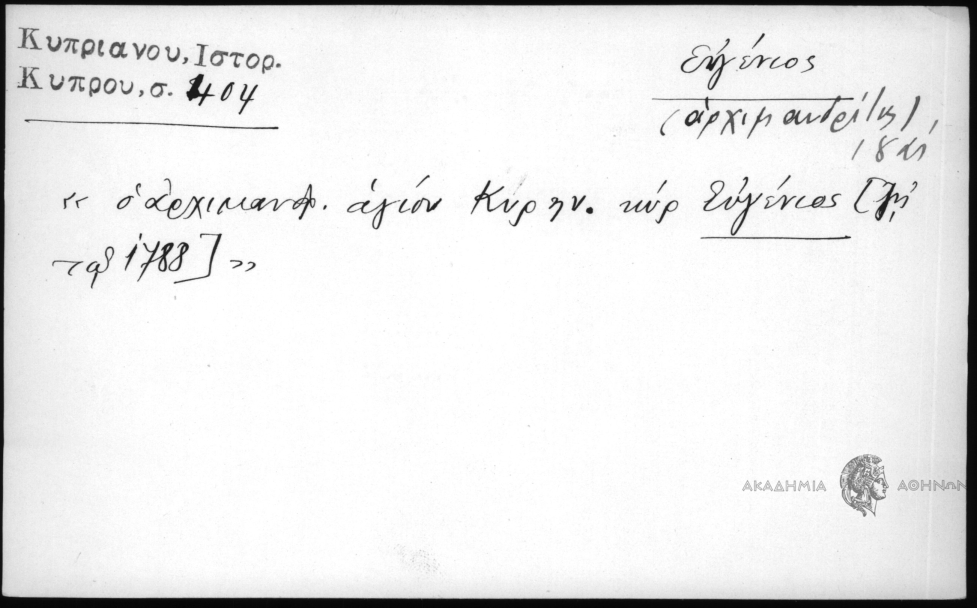 Κυπριανου, Ιστορ.
Κυπρου, σ. 404
Εὐγένιος
(ἀρχιμανδρίτης),
« ὁ ἀρχιμανδ. ἁγίου Κύρην. κὺρ Εὐγένιος [
τοῦ 1788] »
ΑΚΑΔΗΜΙΑ ΑΘΗΝΩΝ